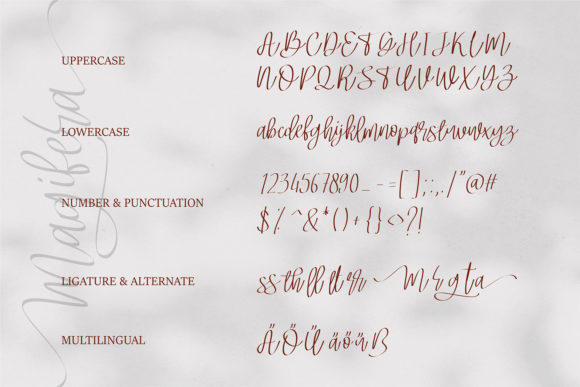 Magifera
UPPERCASE
ABCDEFGHIJKLM
NOPQRSTUVWXYZ
LOWERCASE
abcdefghijklmnopqrstuvwxyz
NUMBER & PUNCTUATION
1234567890_ - = [ ] ; : , . / " @ #
$ % ^ & * ( ) + { } < > ? !
LIGATURE & ALTERNATE
ss th ll lt er M r g t a
MULTILINGUAL
Ä Ö Ü ä ö ü ß